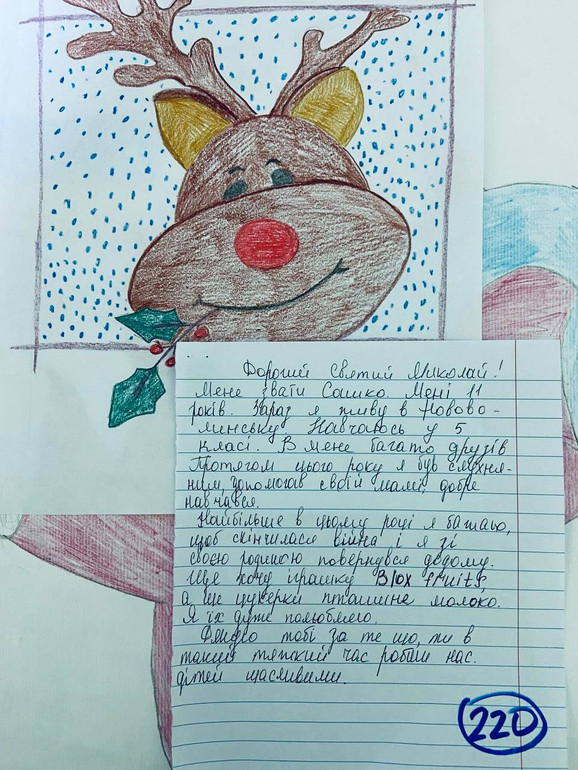 Дорогий Святий Миколай!
Мене звати Сашко. Мені 11
років. Зараз я живу в Новово-
линську. Навчаюсь у 5
класі. В мене багато друзів
Протягом цього року я був слухня-
ним, допомагав своїй мамі, добре
навчався.
Найбільше в цьому році я бажаю,
щоб скінчилася війна і я зі
своєю родиною повернувся додому.
Ще хочу іграшку Blox fruits,
а ще цукерки пташине молоко.
Я їх дуже полюбляю.
Дякую тобі за те що, ти в
такий тяжкий час робиш нас.
дітей щасливими.
220